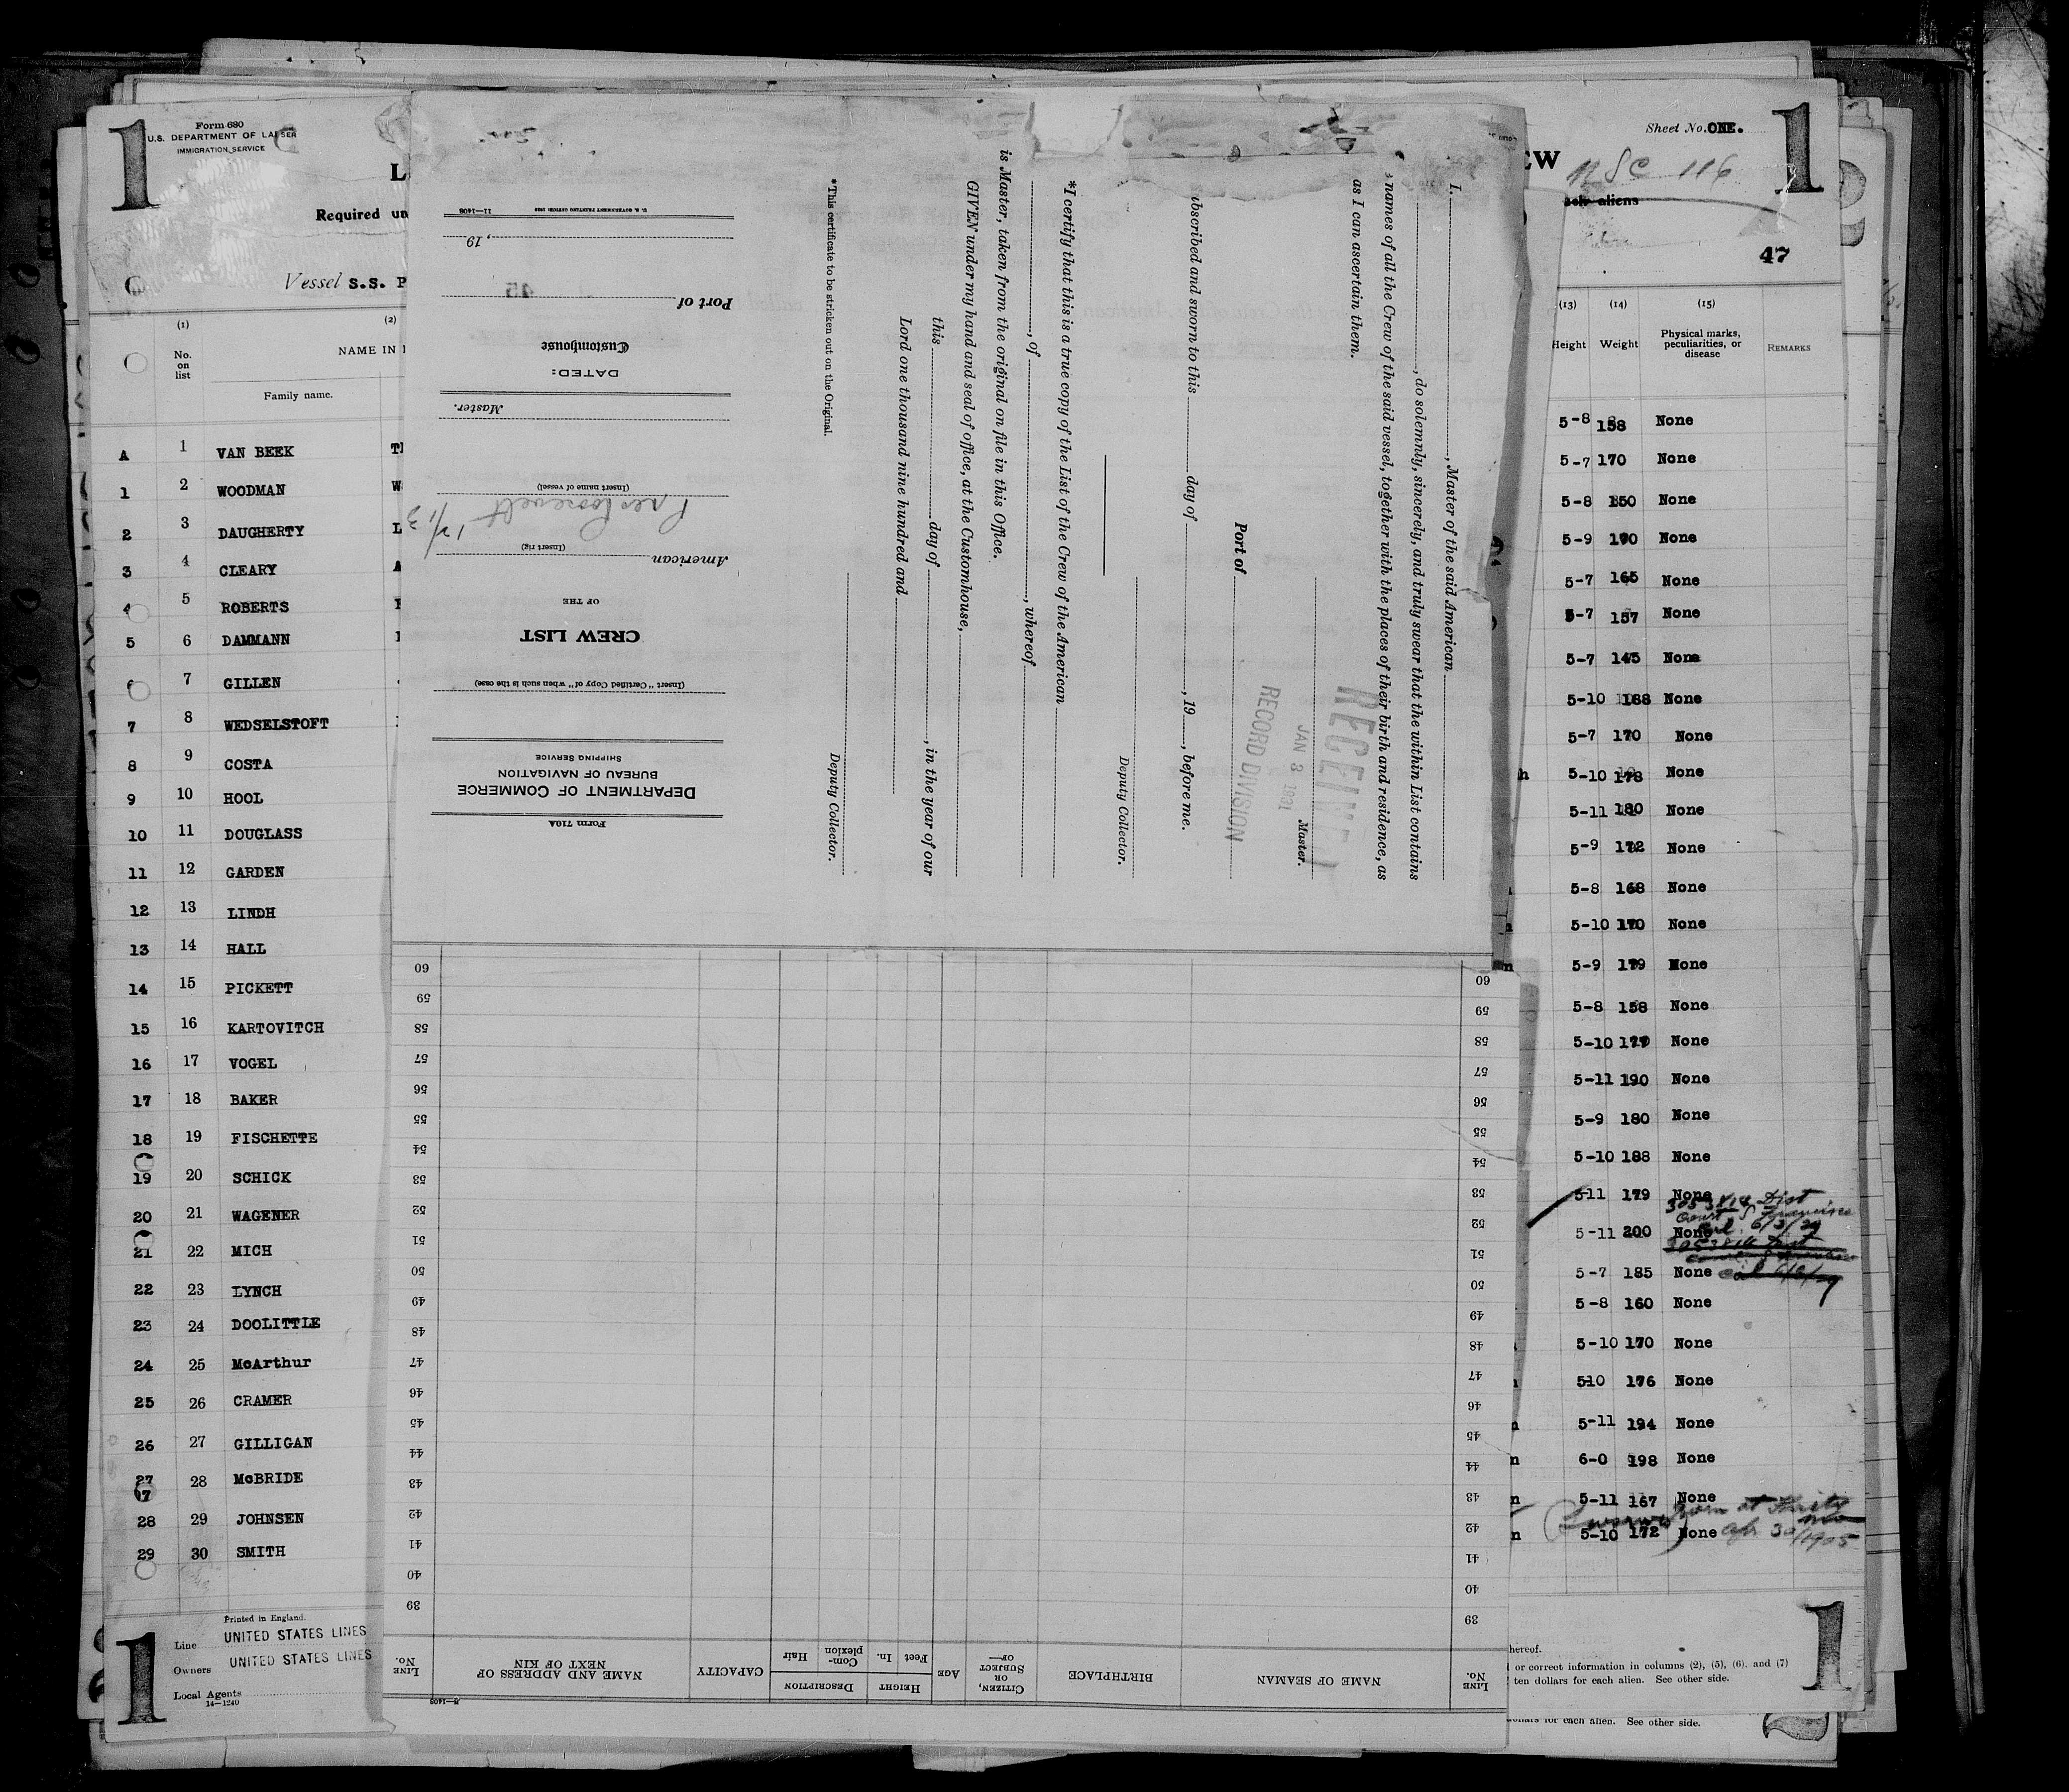 1
Form 680
U.S. DEPARTMENT OF LABOR
IMMIGRATION SERVICE
L
Required un
Vessel S.S. P
(1)
(2)
No.
on
list
NAME IN
Family name.
A 1 VAN BEEK
1 2 WOODMAN W
2 3 DAUGHERTY L
3 4 CLEARY A
4 5 ROBERTS
5 6 DAMMANN
7 GILLEN
7 8 WEDSELSTOFT
8 9 COSTA
9 10 HOOL
10 11 DOUGLASS
11 12 GARDEN
12 13 LINDH
13 14 HALL
14 15 PICKETT
15 16 KARTOVITCH
16 17 VOGEL
17 18 BAKER
18 19 FISCHETTE
19 20 SCHICK
20 21 WAGENER
21 22 MICH
22 23 LYNCH
23 24 DOOLITTLE
24 25 McArthur
25 26 CRAMER
26 27 GILLIGAN
27 28 McBRIDE
28 29 JOHNSEN
29 30 SMITH
Printed in England.
Line UNITED STATES LINES
Owners UNITED STATES LINES
Local Agents
14-1240
1
Form 710A
DEPARTMENT OF COMMERCE
BUREAU OF NAVIGATION
SHIPPING SERVICE
(Insert "Certified Copy of" when such is the case)
CREW LIST
OF THE
American
(Insert rig)
Pres Roosevelt 12/13
(Insert name of vessel)
Master.
DATED:
Customhouse
Port of
45
, 19
U. S. GOVERNMENT PRINTING OFFICE: 11—1408
I, , Master of the said American
, do solemnly, sincerely, and truly swear that the within List contains
names of all the Crew of the said vessel, together with the places of their birth and residence, as
as I can ascertain them.
Master.
RECEIVED
JAN 8 1931
RECORD DIVISION
Port of
bscribed and sworn to this day of , 19 , before me.
Deputy Collector.
*I certify that this is a true copy of the List of the Crew of the American
, of , whereof
is Master, taken from the original on file in this Office.
GIVEN under my hand and seal of office, at the Customhouse,
this day of , in the year of our
Lord one thousand nine hundred and
Deputy Collector.
*This certificate to be stricken out on the Original.
LINE No.
NAME OF SEAMAN
BIRTHPLACE
CITIZEN, OR SUBJECT OF—
AGE
HEIGHT
Feet
In.
DESCRIPTION
Complexion
Hair
CAPACITY
NAME AND ADDRESS OF NEXT OF KIN
LINE No.
39 39
40 40
41 41
42 42
43 43
44 44
45 45
46 46
47 47
48 48
49 49
50 50
51 51
52 52
53 53
54 54
55 55
56 56
57 57
58 58
59 59
60 60
Sheet No. ONE.
1
EW
116
aliens
47
(13) (14) (15)
Height
Weight
Physical marks,
peculiarities, or
disease
REMARKS
5-8 158 None
5-7 170 None
5-8 150 None
5-9 170 None
5-7 165 None
5-7 157 None
5-7 145 None
5-10 188 None
5-7 170 None
5-10 178 None
5-11 180 None
5-9 172 None
5-8 168 None
5-10 170 None
5-9 179 None
5-8 158 None
5-10 None
5-11 190 None
5-9 180 None
5-10 188 None
5-11 179 None
5-11 200 None
5-7 185 None
5-8 160 None
5-10 170 None
510 176 None
5-11 194 None
6-0 198 None
5-11 167 None
5-10 172 None
hereof.
or correct information in columns (2), (5), (6), and (7)
ten dollars for each alien. See other side.
for each alien. See other side.
1